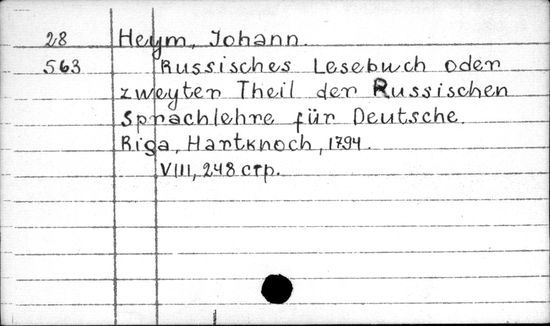 28 Heym, Johann.
563 Russisches Lesebuch oder
zweyter Theil der Russischen
Sprachlehre für Deutsche.
Riga, Hartknoch, 1794.
VIII, 248 стр.